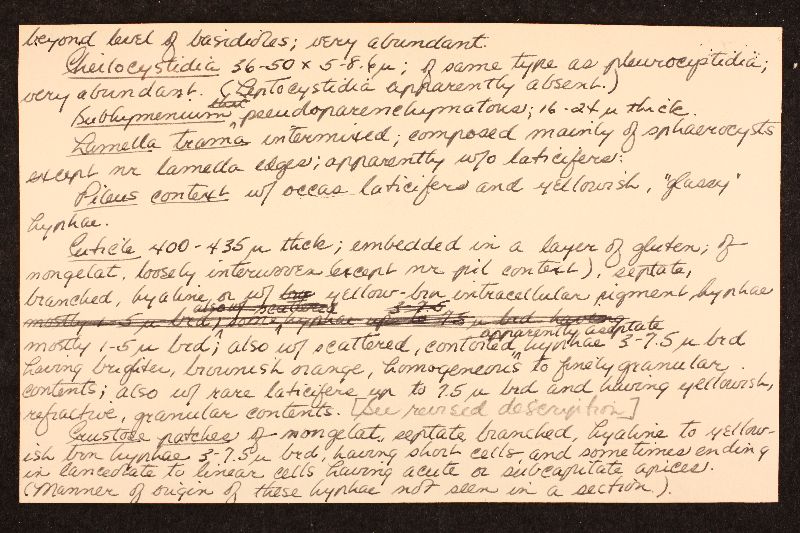 beyond level of basidioles; very abundant.
Cheilocystidia 36-50 x 5-8.6 µ; of same type as pleurocystidia;
very abundant. (Leptocystidia apparently absent.)
Subhymenium thin pseudoparenchymatous; 16-24 µ thick.
Lamella trama intermixed; composed mainly of sphaerocysts
except nr lamella edges; apparently w/o laticifers.
Pileus context w/ occas laticifers and yellowish, "glassy"
hyphae.
Cuticle 400-435 µ thick; embedded in a layer of gluten; of
nongelat, loosely interwoven (except nr pil context), septate,
branched, hyaline, or w/ yellow-brn intracellular pigment, hyphae
also w/ scattered 3-7.5
mostly 1-5 µ brd; some hyphae up to 7.5 µ brd having
apparently aseptate
mostly 1-5 µ brd; also w/ scattered, contorted hyphae 3-7.5 µ brd
having brighter, brownish orange, homogeneous to finely granular
contents; also w/ rare laticifers up to 7.5 µ brd and having yellowish,
refractive, granular contents. [See revised description]
Crustose patches of nongelat, septate branched, hyaline to yellow-
ish brn hyphae 3-7.5 µ brd, having short cells and sometimes ending
in lanceolate to linear cells having acute or subcapitate apices.
(Manner of origin of these hyphae not seen in a section.)